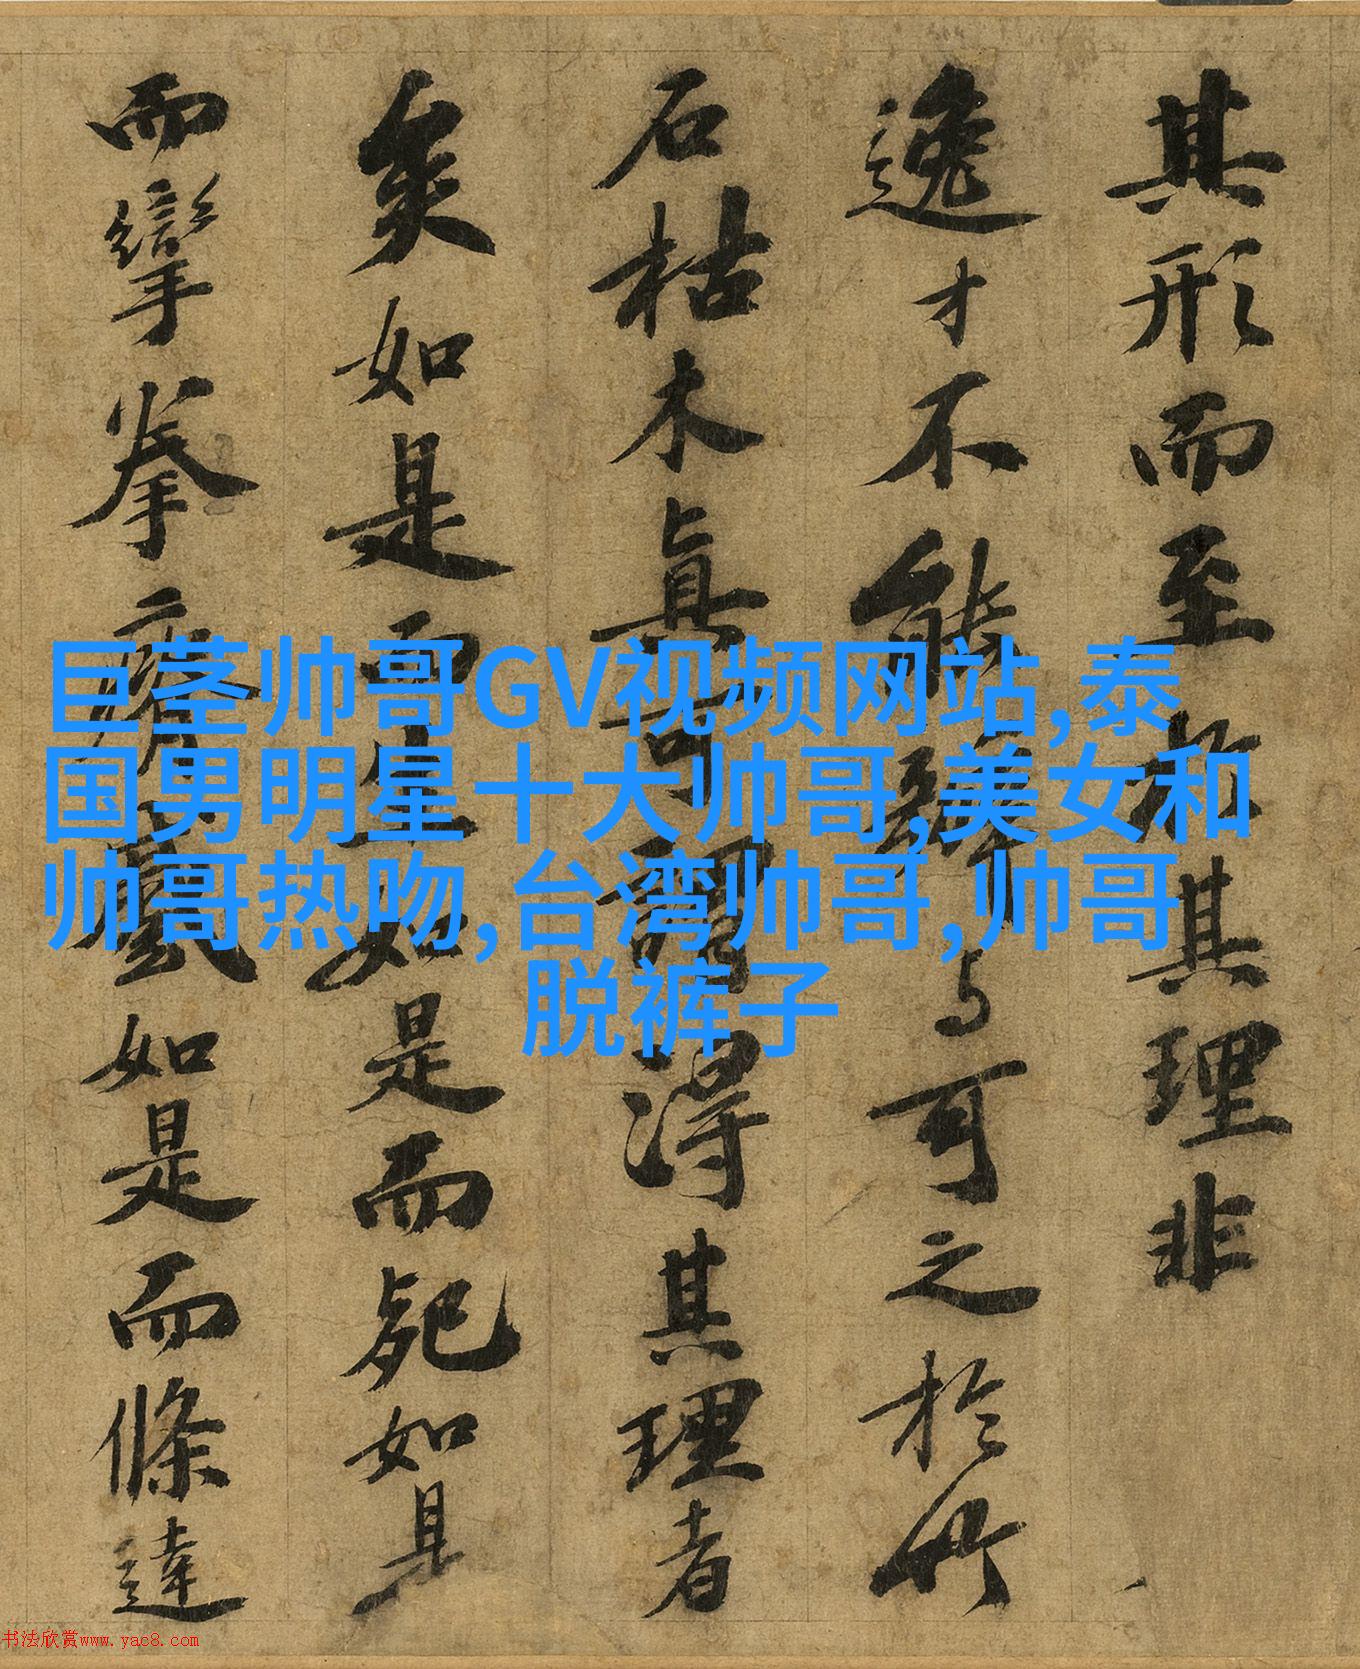 其形而至於其理非
逸才不能辨与可之於竹
石枯木真可謂得其理者
矣如是而生如是而死如是
而攣拳瘠蹙如是而條達
巨茎帅哥GV视频网站,泰
国男明星十大帅哥,美女和
帅哥热吻,台湾帅哥,帅哥
脱裤子
书法欣赏www.yac8.com